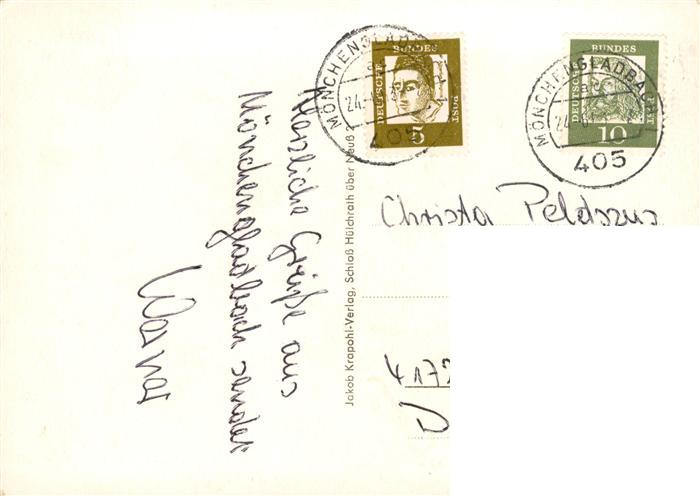 Herzliche Grüße aus
Mönchengladbach sendet
Jakob Krapohl-Verlag, Schloß Hülchrath über Neuß 2
DEUTSCHE BUNDES POST
5
DEUTSCHE BUNDES POST
10
MÖNCHENGLADBACH
24.
405
MÖNCHENGLADBACH
24.
405
Christa Peldszus
417